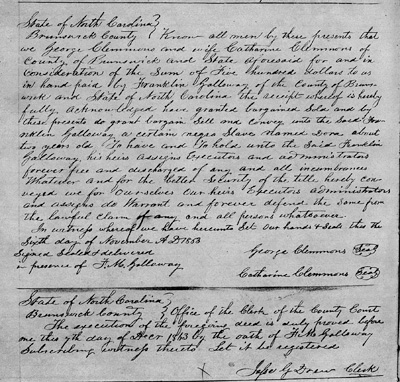 State of North Carolina}
Brunswick County } Know all men by these presents that
we George Clemmons and wife Catharine Clemmons of
County of Brunswick and State Aforesaid for and in
consideration of the Sum of Five hundred dollars to us
in hand paid by Franklin Galloway of the County of Bruns
wick and State of North Carolina the receipt whereof is hereby
fully acknowledged have granted bargained Sold and by
these presents do grant bargain Sell and convey unto the Said Fran
klin Galloway a certain negro Slave named Dora about
two years old To have and to hold unto the Said Franklin
Galloway, his heirs assigns Executors and administrators
forever free and discharged of any and all incumbrances
Whatever and for the better Security of the title hereby con
veyed we for Ourselves Our heirs Executors administrators
and assigns do Warrant and forever defend the Same from
the lawful claim of any and all persons whatsoever.
In witness whereof we have hereunto Set Our hands & Seals this the
Sixth day of November A.D 1853
George Clemmons Seal
Signed Sealed & delivered
in presence of F. M. Galloway
Catharine Clemmons Seal
State of North Carolina}
Brunswick County } Office of the Clerk of the County Court
The execution of the foregoing deed is duly proved before
me this 7th day of Decr 1863 by the oath of F. M. Galloway
Subscribing witness thereto Let it be registered
G Drew Clerk
X